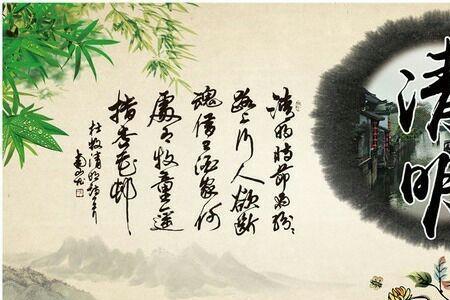 清明
清明时節雨纷々
路上行人欲断
魂借问酒家何
處有牧童遥
指杏花邨
杜牧清明诗